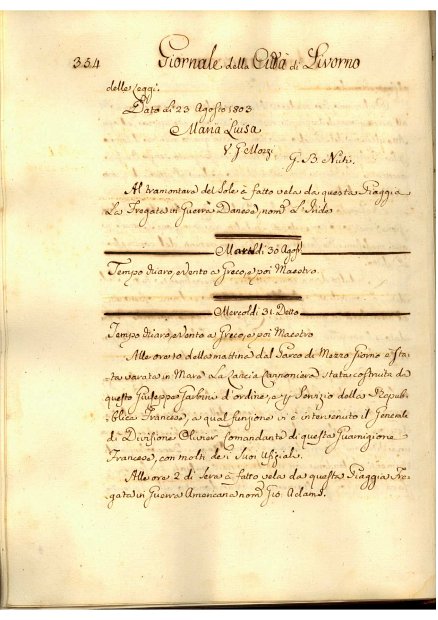 354 Giornale della Città di Livorno
delle Leggi.
Dato li 23 Agosto 1803
Maria Luisa
V. G. B. Nuti.
Al tramontare del Sole è fatto vela da questa Piaggia
La Fregata in Guerra Danese, nom.ª L'
Martedì 30 Agos.º
Tempo chiaro, e vento a Greco, e poi Maestro.
Mercoldì 31 Detto
Tempo chiaro, e vento a Greco, e poi Maestro
Alle ore 10 della mattina dal Parco di Mezzo Giorno è sta-
ta varata in Mare La Cannoniera stata costruita da
questo Giuseppe d'ordine, e p. Servizio della Repub-
blica Francese, a qual funzione vi è intervenuto il Generale
di Divisione Olivier Comandante di questa Guarnigione
Francese, con molti de i Suoi Ufiziali.
Alle ore 2 di Sera è fatto vela da questa Piaggia Fre-
gata in Guerra Americana nom.ª Gio. Adams.